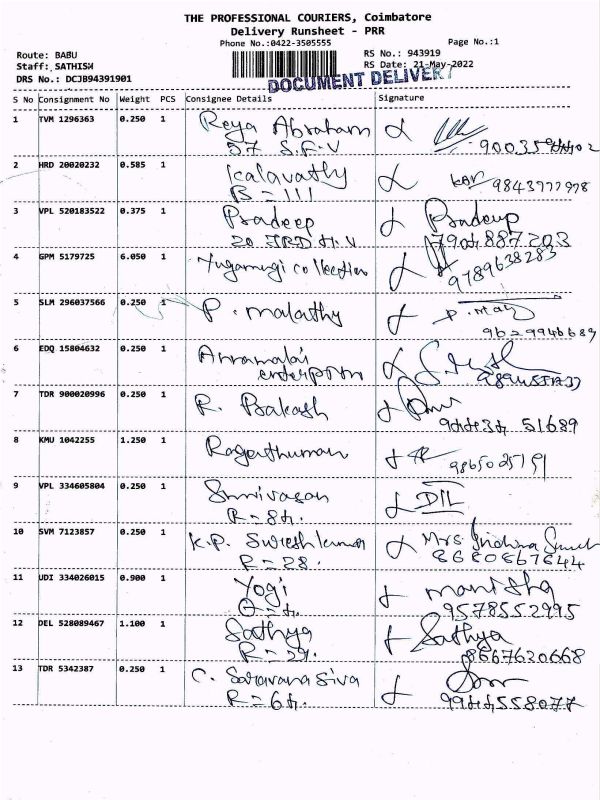 THE PROFESSIONAL COURIERS, Coimbatore
Delivery Runsheet - PRR
Phone No.:0422-3505555 Page No.:1
Route: BABU RS No.: 943919
Staff: SATHISH RS Date: 21-May-2022
DRS No.: DCJB94391901 DOCUMENT DELIVERY
S No Consignment No Weight PCS Consignee Details Signature
1 TVM 1296363 0.250 1 Reya Abraham
57 S.F.V
2 HRD 20020232 0.585 1 Kalavathy
B = 111 9843777978
3 VPL 520183522 0.375 1 Pradeep Pradeup
20 3RD H.V 7904887203
4 GPM 5179725 6.050 1 Yugamugi collection 9789638283
5 SLM 296037566 0.250 1 P. malathy P. Mal
9629946689
6 EDQ 15804632 0.250 1 Annamalai
enterprom
7 TDR 900020996 0.250 1 R. Prakash
944434 51689
8 KMU 1042255 1.250 1 Ragerthuman 9865025191
9 VPL 334605804 0.250 1 Srinivasan DIL
R = 84.
10 SVM 7123857 0.250 1 K.P. Sureshkumar Mrs. Indhira
R = 28. 8680867644
11 UDI 334026015 0.900 1 Yogi manisha
9578552995
12 DEL 528089467 1.100 1 Sathya Sathya
R = 29. 8667630668
13 TDR 5342387 0.250 1 C. Saravana siva
R = 64. 9944558077